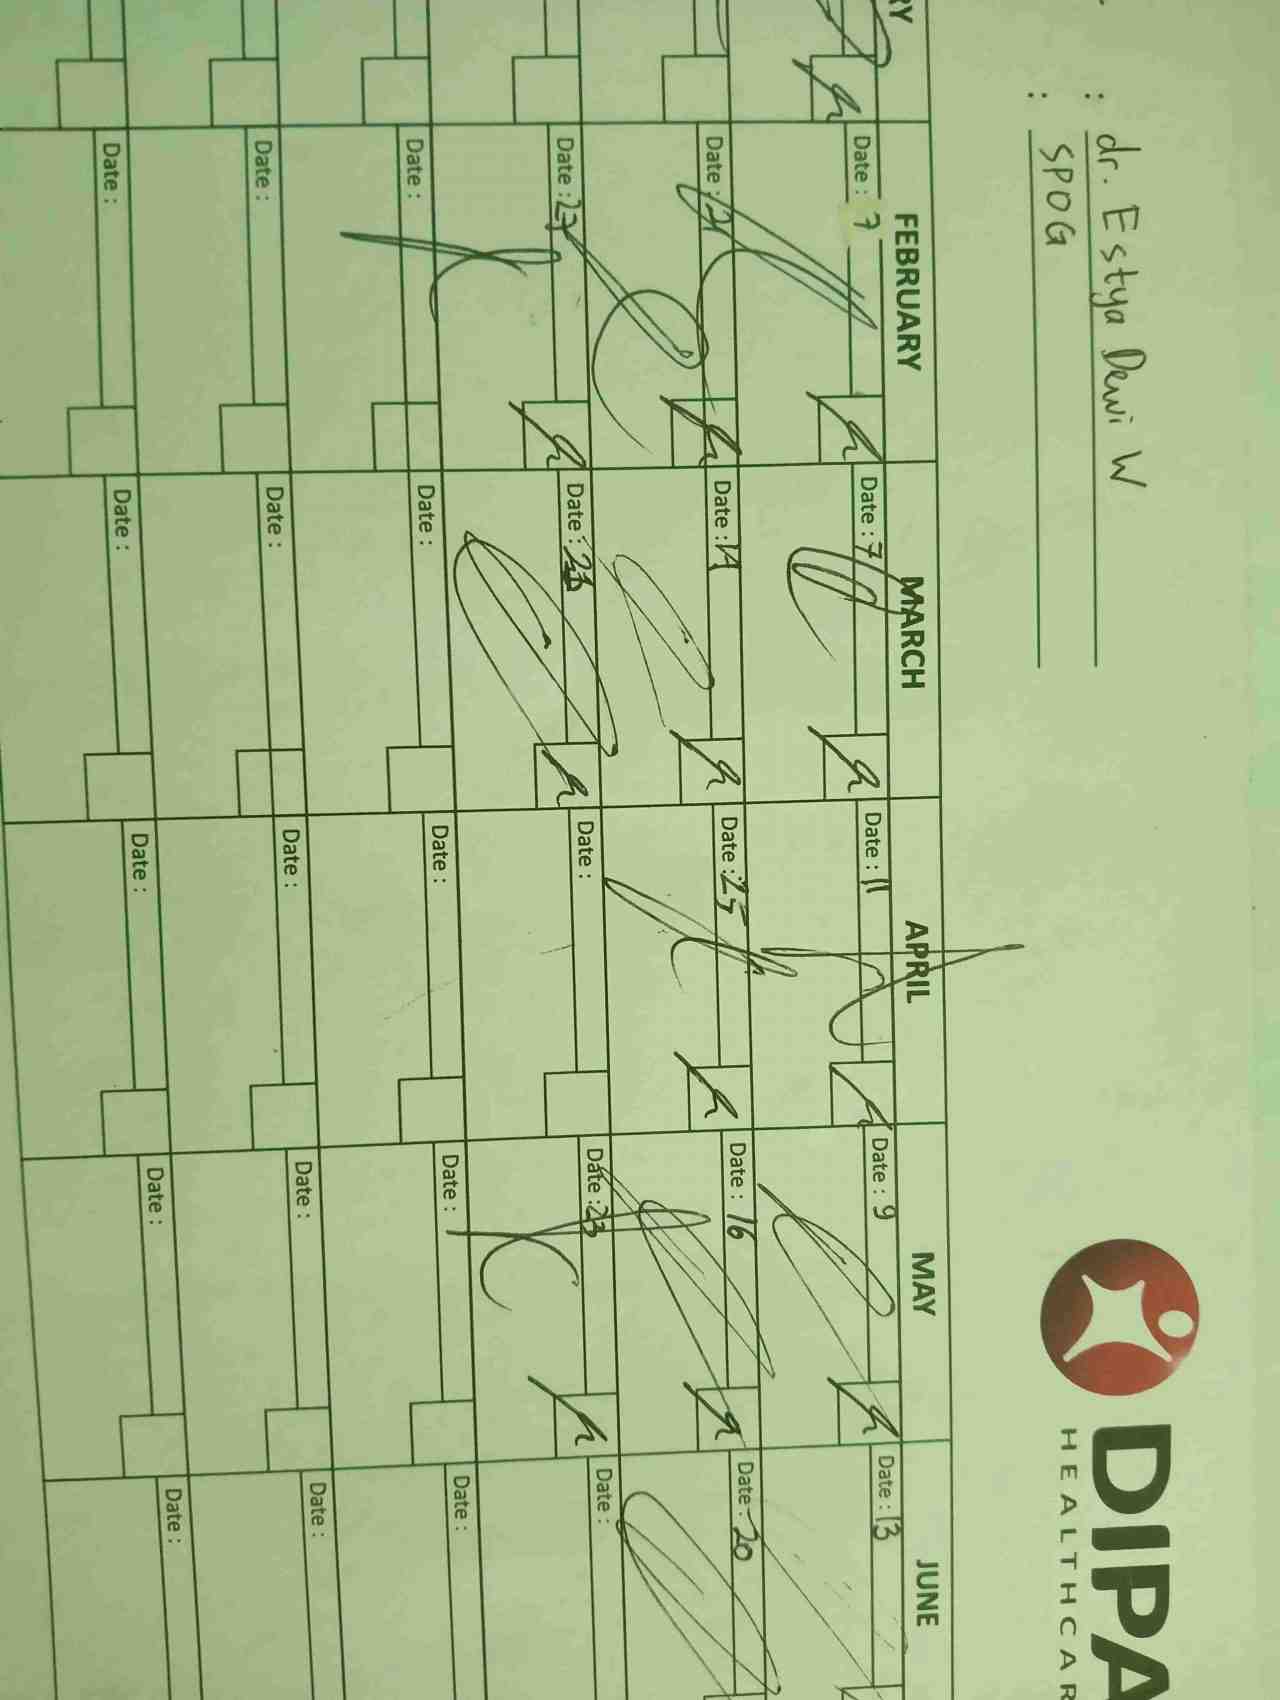 : dr. Estya Dewi W
: SPOG
DIPA
HEALTHCAR
RY FEBRUARY MARCH APRIL MAY JUNE
Date : 7 Date : 7 Date : 11 Date : 9 Date : 13
Date : 21 Date : 14 Date : 25 Date : 16 Date : 20
Date : 27 Date : Date : Date : 23 Date :
Date : Date : Date : Date : Date :
Date : Date : Date : Date : Date :
Date : Date : Date : Date : Date :